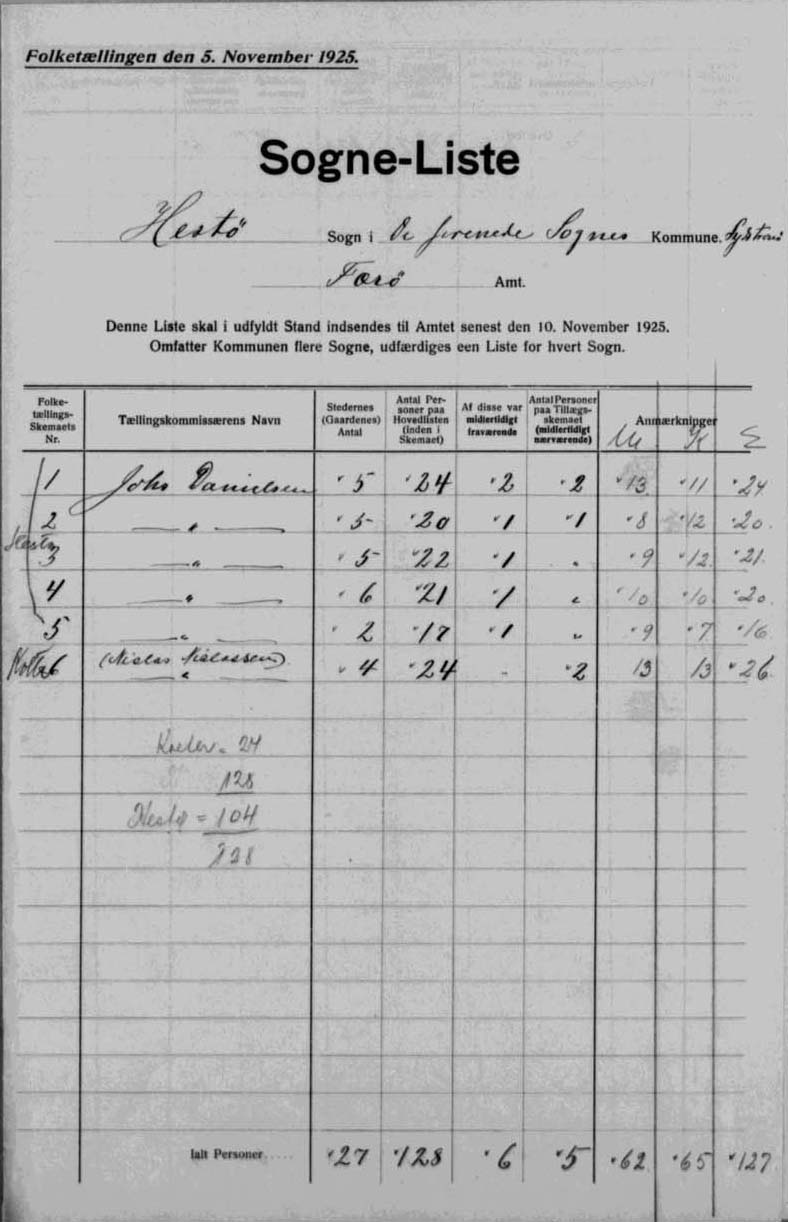 Folketællingen den 5. November 1925.
Sogne-Liste
Hestø Sogn i De forenede Sognes Kommune. Sydstrømø
Færø Amt.
Denne Liste skal i udfyldt Stand indsendes til Amtet senest den 10. November 1925.
Omfatter Kommunen flere Sogne, udfærdiges een Liste for hvert Sogn.
Folke-
tællings-
Skemaets
Nr.
Tællingskommissærens Navn
Stedernes
(Gaardenes)
Antal
Antal Per-
soner paa
Hovedlisten
(inden i
Skemaet)
Af disse var
midlertidigt
fraværende
Antal Personer
paa Tillægs-
skemaet
(midlertidigt
nærværende)
Anmærkninger
M K Σ
1 Johs Danielsen 5 24 2 2 13 11 24
2 — " — 5 20 1 1 8 12 20
Hestø
3 — " — 5 22 1 " 9 12 21
4 — " — 6 21 1 " 10 10 20
5 — " — 2 17 1 " 9 7 16
Kolter 6 (Niclas Niclassen) 4 24 - 2 13 13 26
— " —
Kolter = 24
128
Hestø = 104
128
Ialt Personer 27 128 6 5 62 65 127